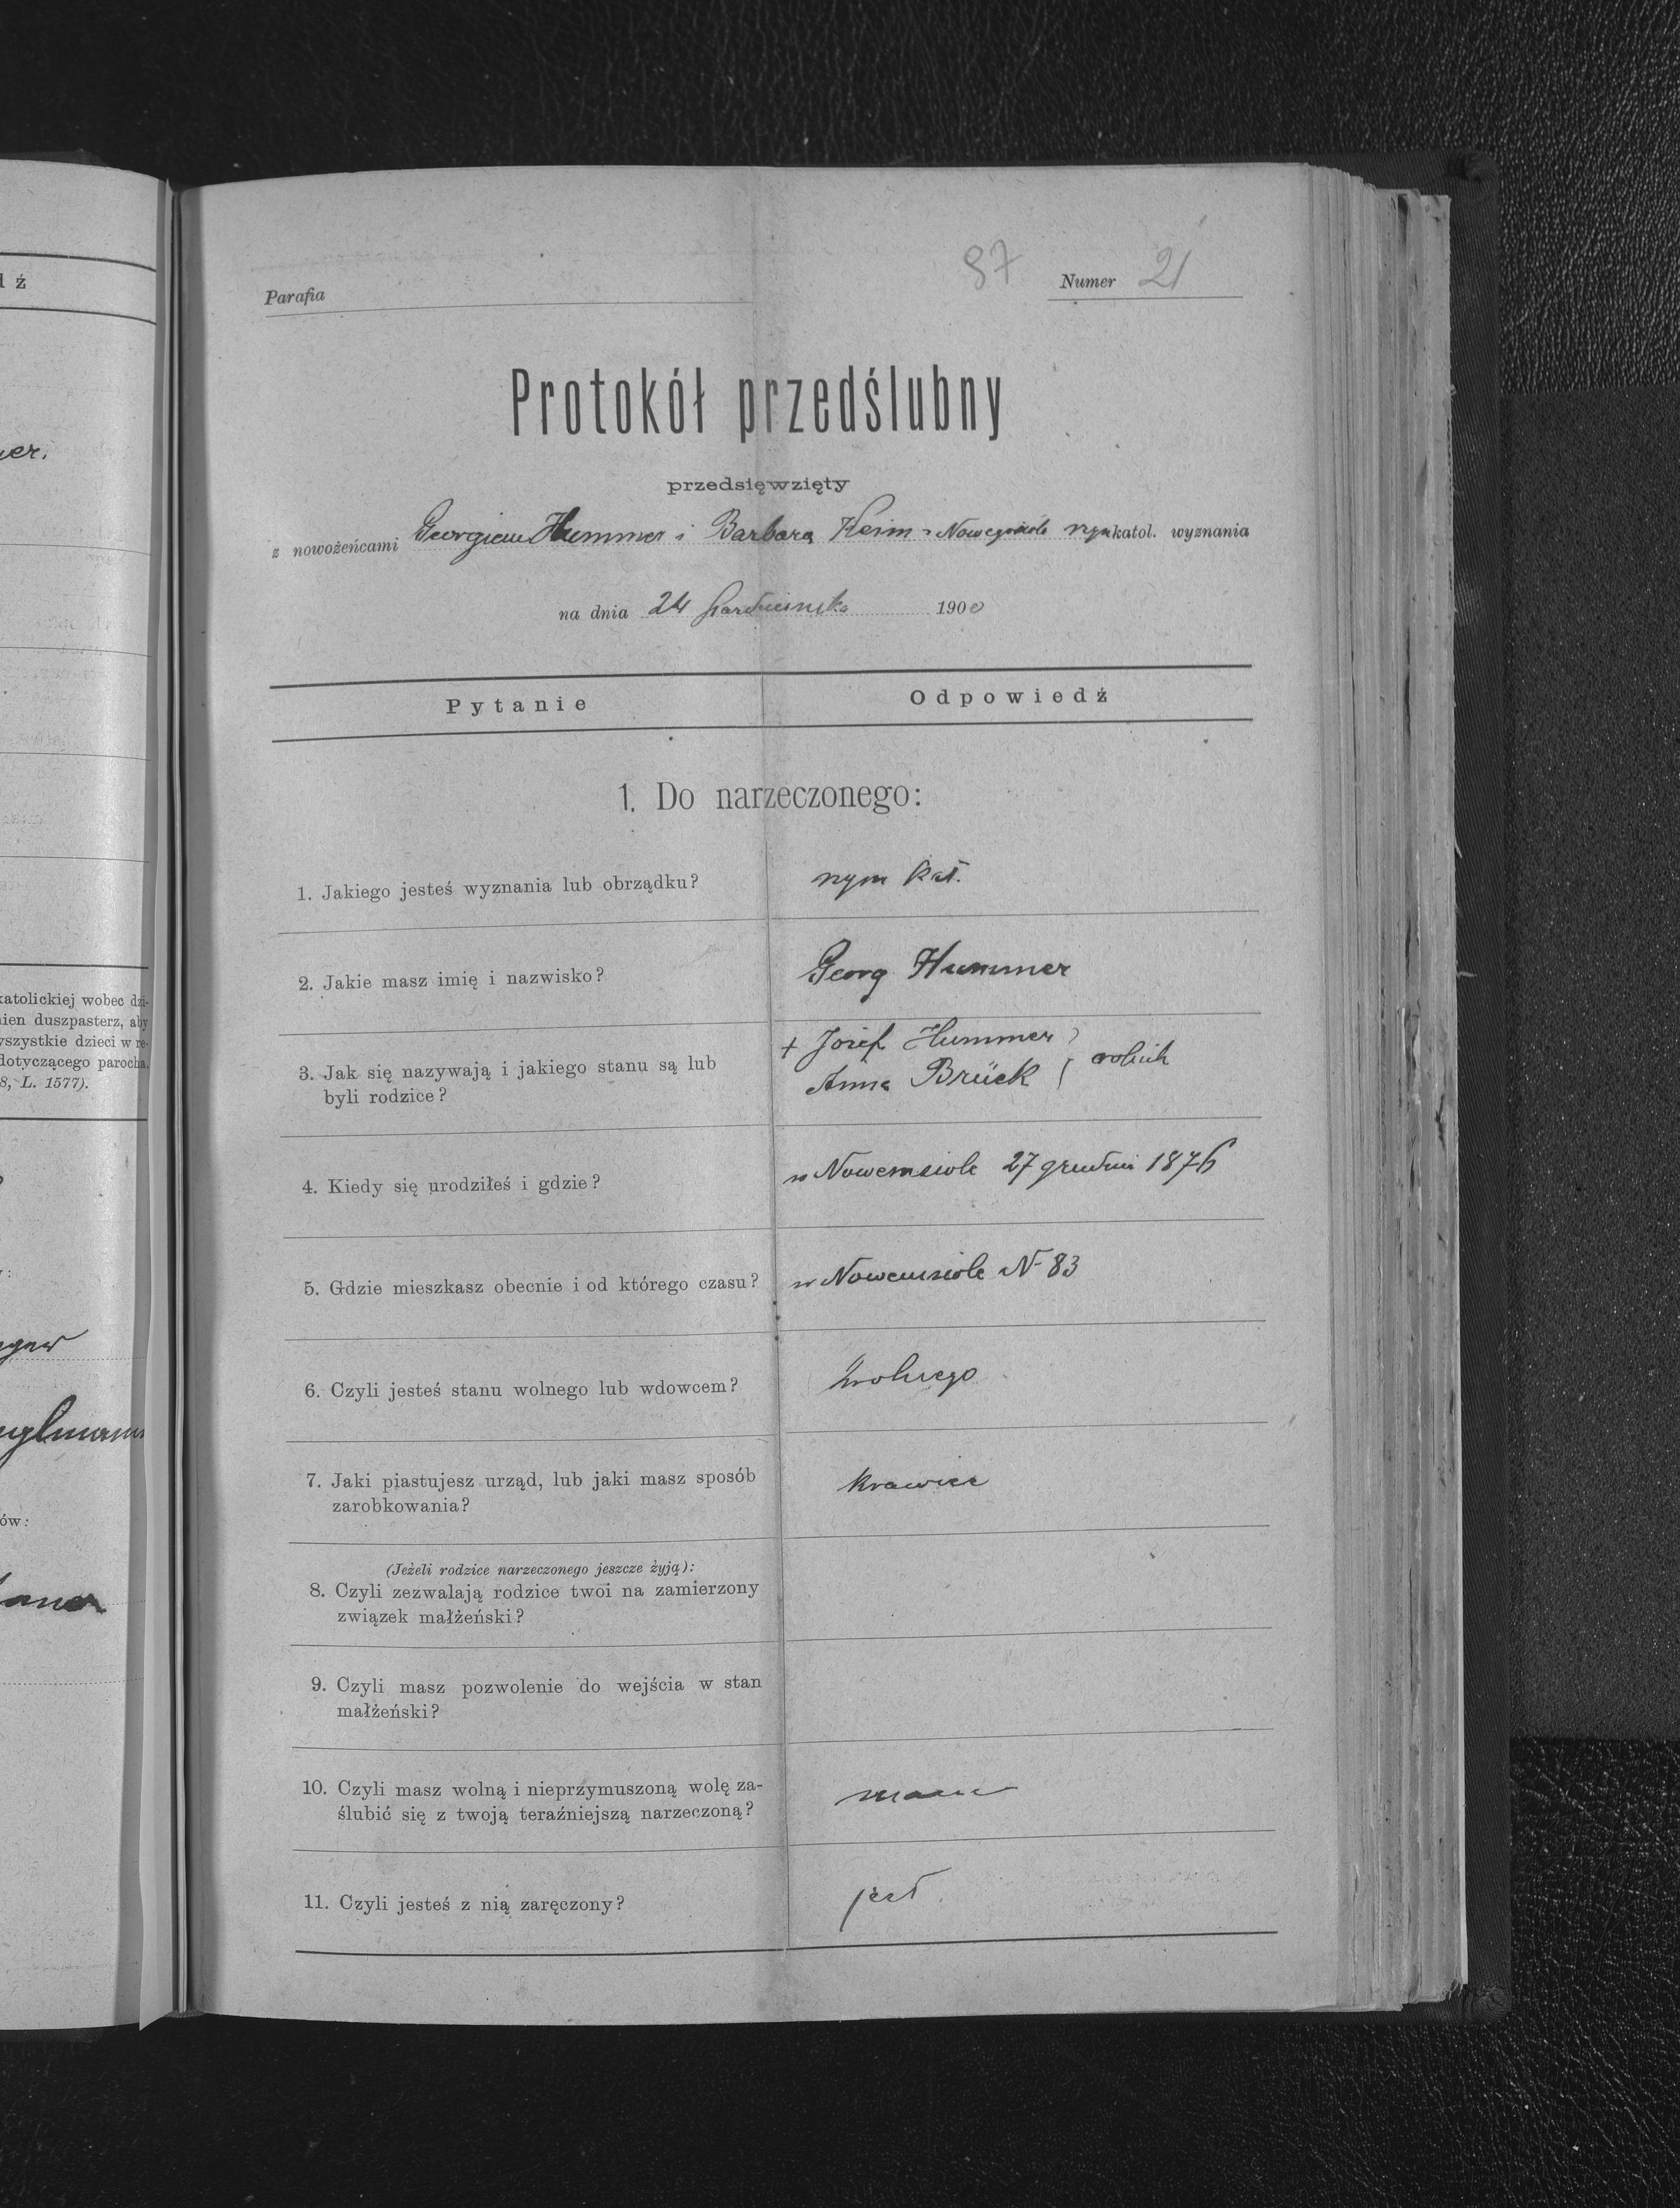 dź
Parafia
87 Numer 21
Protokół przedślubny
przedsięwzięty
z nowożeńcami Georgiem Hummer i Barbarą Keim z Nowegosioła rzym katol. wyznania
na dnia 24 października 1900
Pytanie Odpowiedź
1. Do narzeczonego:
1. Jakiego jesteś wyznania lub obrządku? rzym kat.
2. Jakie masz imię i nazwisko? Georg Hummer
3. Jak się nazywają i jakiego stanu są lub
byli rodzice?
+ Josef Hummer
Anna Brück
rolnik
4. Kiedy się urodziłeś i gdzie? w Nowemsiole 27 grudnia 1876
5. Gdzie mieszkasz obecnie i od którego czasu? w Nowemsiole N 83
6. Czyli jesteś stanu wolnego lub wdowcem? wolnego
7. Jaki piastujesz urząd, lub jaki masz sposób
zarobkowania?
krawiec
(Jeżeli rodzice narzeczonego jeszcze żyją):
8. Czyli zezwalają rodzice twoi na zamierzony
związek małżeński?
9. Czyli masz pozwolenie do wejścia w stan
małżeński?
10. Czyli masz wolną i nieprzymuszoną wolę za-
ślubić się z twoją teraźniejszą narzeczoną?
mam
11. Czyli jesteś z nią zaręczony? jest
er.
katolickiej wobec dzi-
nien duszpasterz, aby
wszystkie dzieci w re-
dotyczącego parocha.
8, L. 1577).
ów: